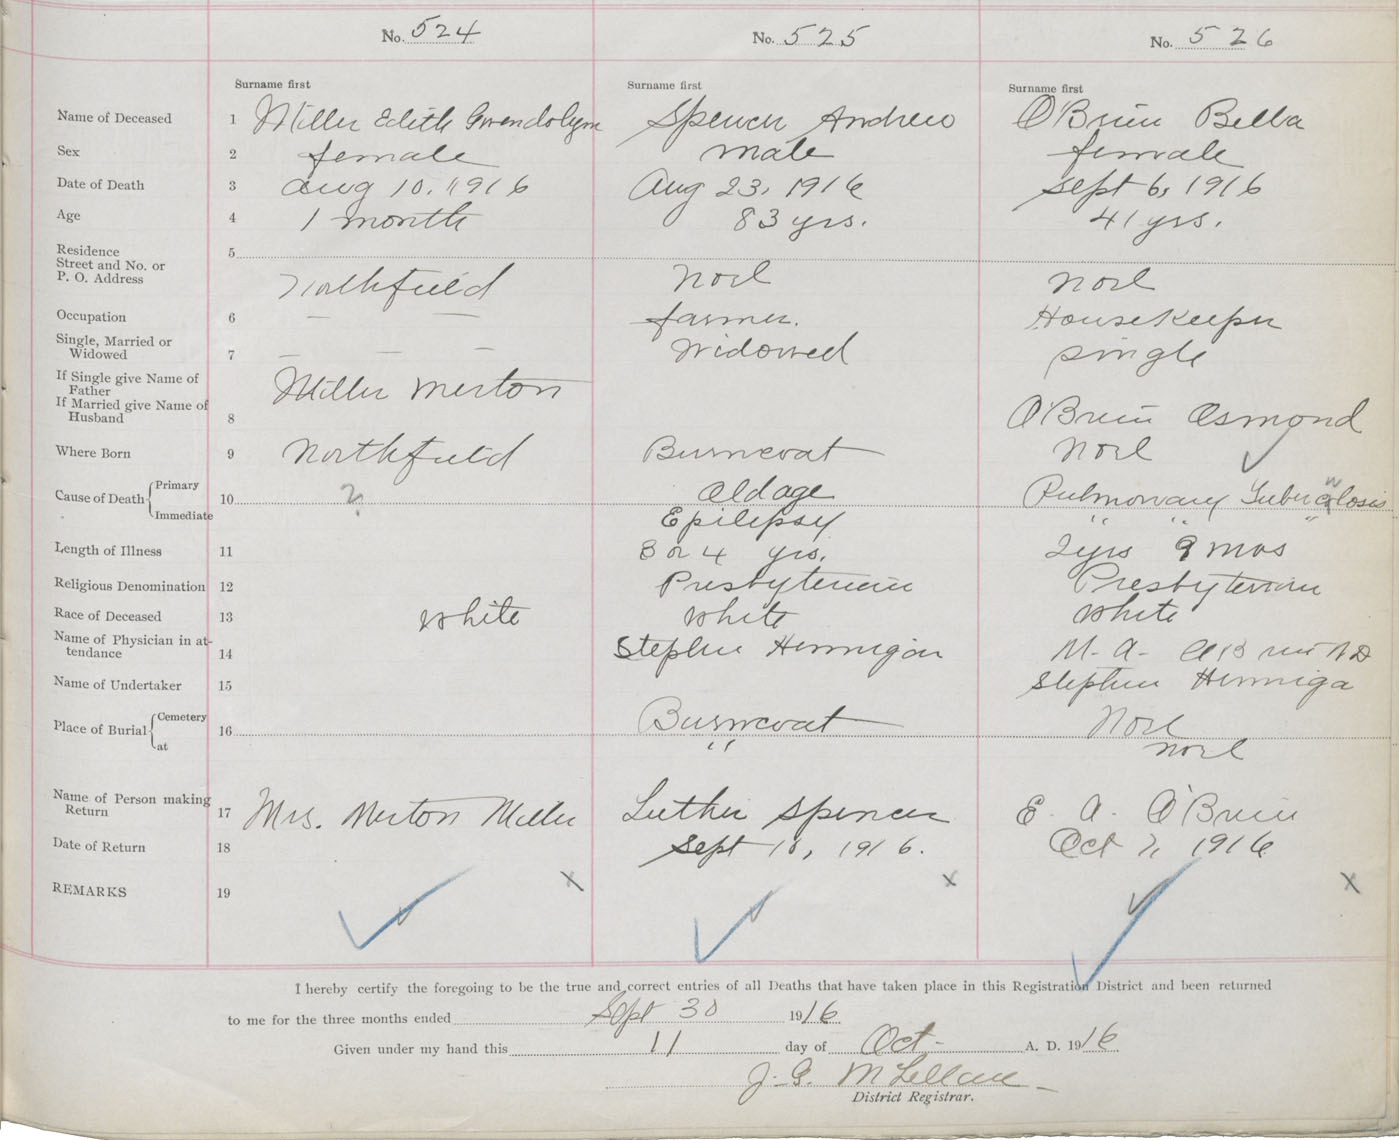 No. 524 No. 525 No. 526
Surname first Surname first Surname first
Name of Deceased 1 Miller Edith Gwendolyn Spencer Andrew O'Brien Bella
Sex 2 female male female
Date of Death 3 Aug 10, 1916 Aug 23, 1916 Sept 6, 1916
Age 4 1 month 83 yrs. 41 yrs.
Residence 5
Street and No. or
P. O. Address Northfield Noel Noel
Occupation 6 — — farmer. Housekeeper
Single, Married or
Widowed 7 — — — Widowed single
If Single give Name of
Father Miller Merton
If Married give Name of
Husband 8 O'Brien Osmond
Where Born 9 Northfield Burncoat Noel
Cause of Death { Primary 10 ? Old age Pulmonary Tuberculosis
Immediate Epilepsy " " "
Length of Illness 11 3 or 4 yrs. 2 yrs 9 mos
Religious Denomination 12 Presbyterian Presbyterian
Race of Deceased 13 White White White
Name of Physician in at-
tendance 14 Stephen Hennigar M. A. O'Brien MD
Name of Undertaker 15 Stephen Henniga
Place of Burial { Cemetery 16 Burncoat Noel
at " Noel
Name of Person making
Return 17 Mrs. Merton Miller Luther Spencer E. A. O'Brien
Date of Return 18 Sept 18, 1916. Oct 7, 1916
REMARKS 19 x x x
I hereby certify the foregoing to be the true and correct entries of all Deaths that have taken place in this Registration District and been returned
to me for the three months ended Sept 30 1916
Given under my hand this 11 day of Oct- A. D. 1916
J. G. McLellan
District Registrar.